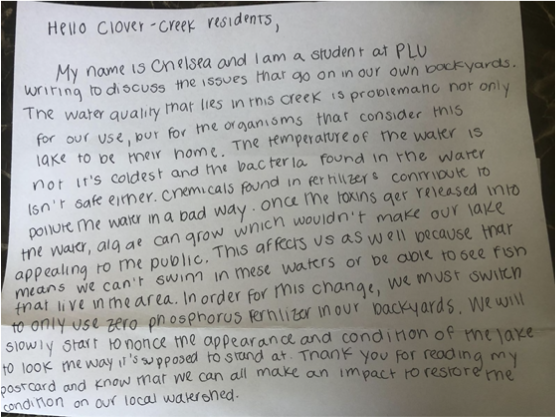 Hello Clover-Creek residents,
My name is Chelsea and I am a student at PLU
writing to discuss the issues that go on in our own backyards.
The water quality that lies in this creek is problematic not only
for our use, but for the organisms that consider this
lake to be their home. The temperature of the water is
not it's coldest and the bacteria found in the water
isn't safe either. Chemicals found in fertilizers contribute to
pollute the water in a bad way. Once the toxins get released into
the water, algae can grow which wouldn't make our lake
appealing to the public. This affects us as well because that
means we can't swim in these waters or be able to see fish
that live in the area. In order for this change, we must switch
to only use zero phosphorus fertilizer in our backyards. We will
slowly start to notice the appearance and condition of the lake
to look the way it's supposed to stand at. Thank you for reading my
postcard and know that we can all make an impact to restore the
condition on our local watershed.